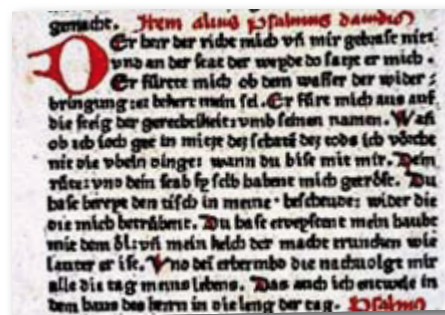 gemacht. Item alius psalmus dauidis
DEr herr der richt mich vñ mir gebrast nit:
vnd an der stat der weyde do satzt er mich.
Er fůrte mich ob dem wasser der wider:
bringung: er bekert mein sel. Er fůrt mich aus auf
die steig der gerechtikeit: vmb seinen namen. Wañ
ob ich ioch gee in mitzt des schatē des tods ich vörcht
nit die vbeln dinge: wann du bist mit mir. Dein
růte: vnd dein stab sy selb habent mich getröst. Du
hast bereyt den tisch in meiner bescheude: wider die
die mich betrübent. Du hast erueystent mein haubt
mit dem öl: vñ mein kelch der macht truncken wie
lauter er ist. Vnd dei erbermbd die nachuolgt mir
alle die tag meins lebens. Das auch ich entwele in
dem haus des herrn in die leng der tag. Psalmus